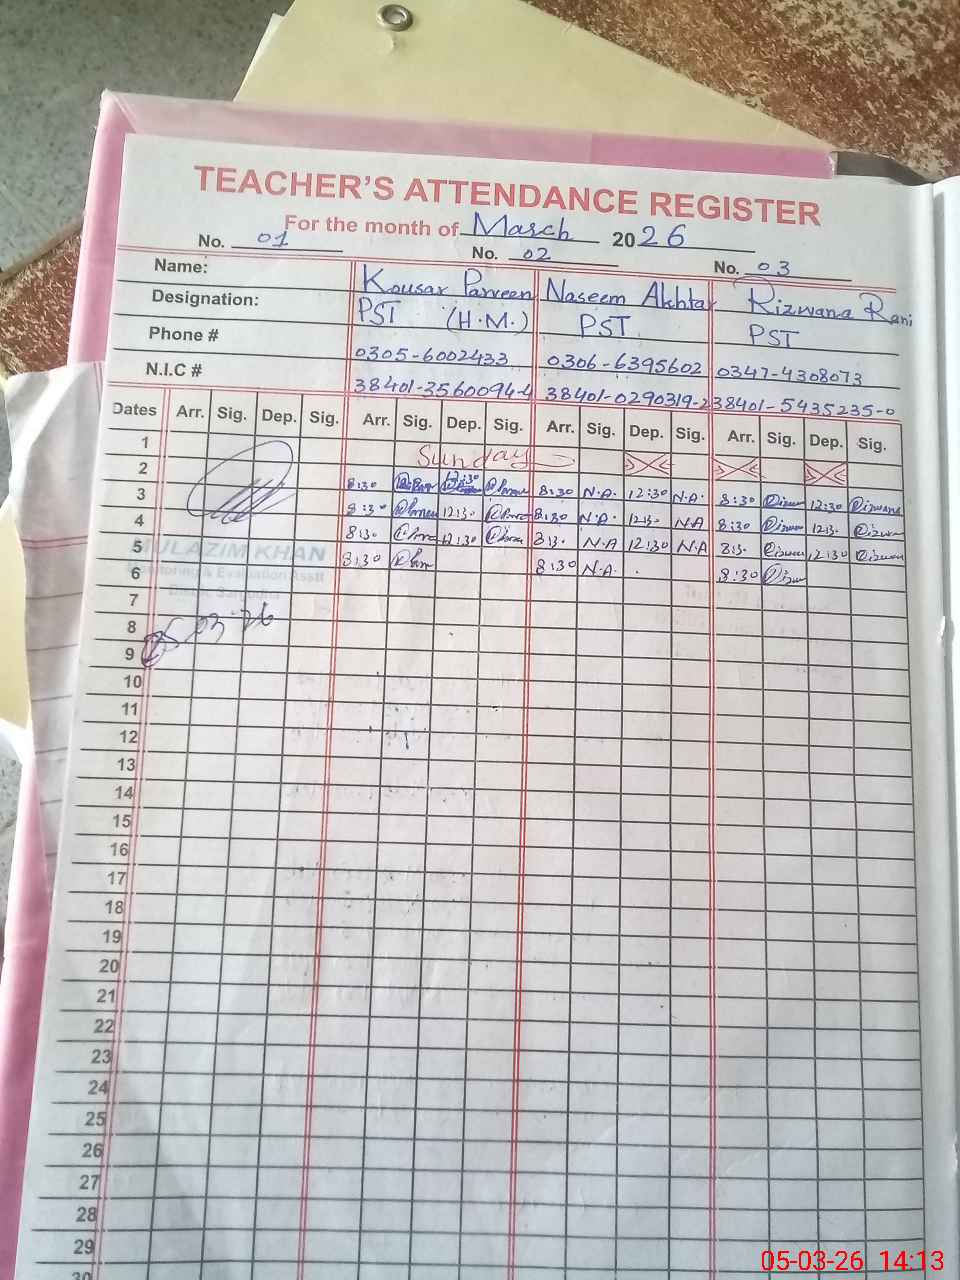 TEACHER'S ATTENDANCE REGISTER
For the month of March 2026
No. 01 No. 02 No. 03
Name: Kousar Parveen Naseem Akhtar Rizwana Rani
Designation: PST (H.M.) PST PST
Phone # 0305-6002433 0306-6395602 0347-4308073
N.I.C # 38401-3560094-4 38401-0290319-2 38401-5435235-0
Dates Arr. Sig. Dep. Sig. Arr. Sig. Dep. Sig. Arr. Sig. Dep. Sig. Arr. Sig. Dep. Sig.
1 Sunday
2 8:30 12:30 8:30 N.A. 12:30 N.A. 8:30 12:30 Rizwana
3 8:30 12:30 8:30 N.A. 12:30 N.A 8:30 12:30
4 8:30 12:30 8:30 N.A 12:30 N.A 8:30 12:30
5 8:30 8:30 N.A. 8:30
MULAZIM KHAN
Monitoring & Evaluation Asstt
Distt. Sargodha
6
7
8
05-03-26
9
10
11
12
13
14
15
16
17
18
19
20
21
22
23
24
25
26
27
28
29
30
05-03-26 14:13